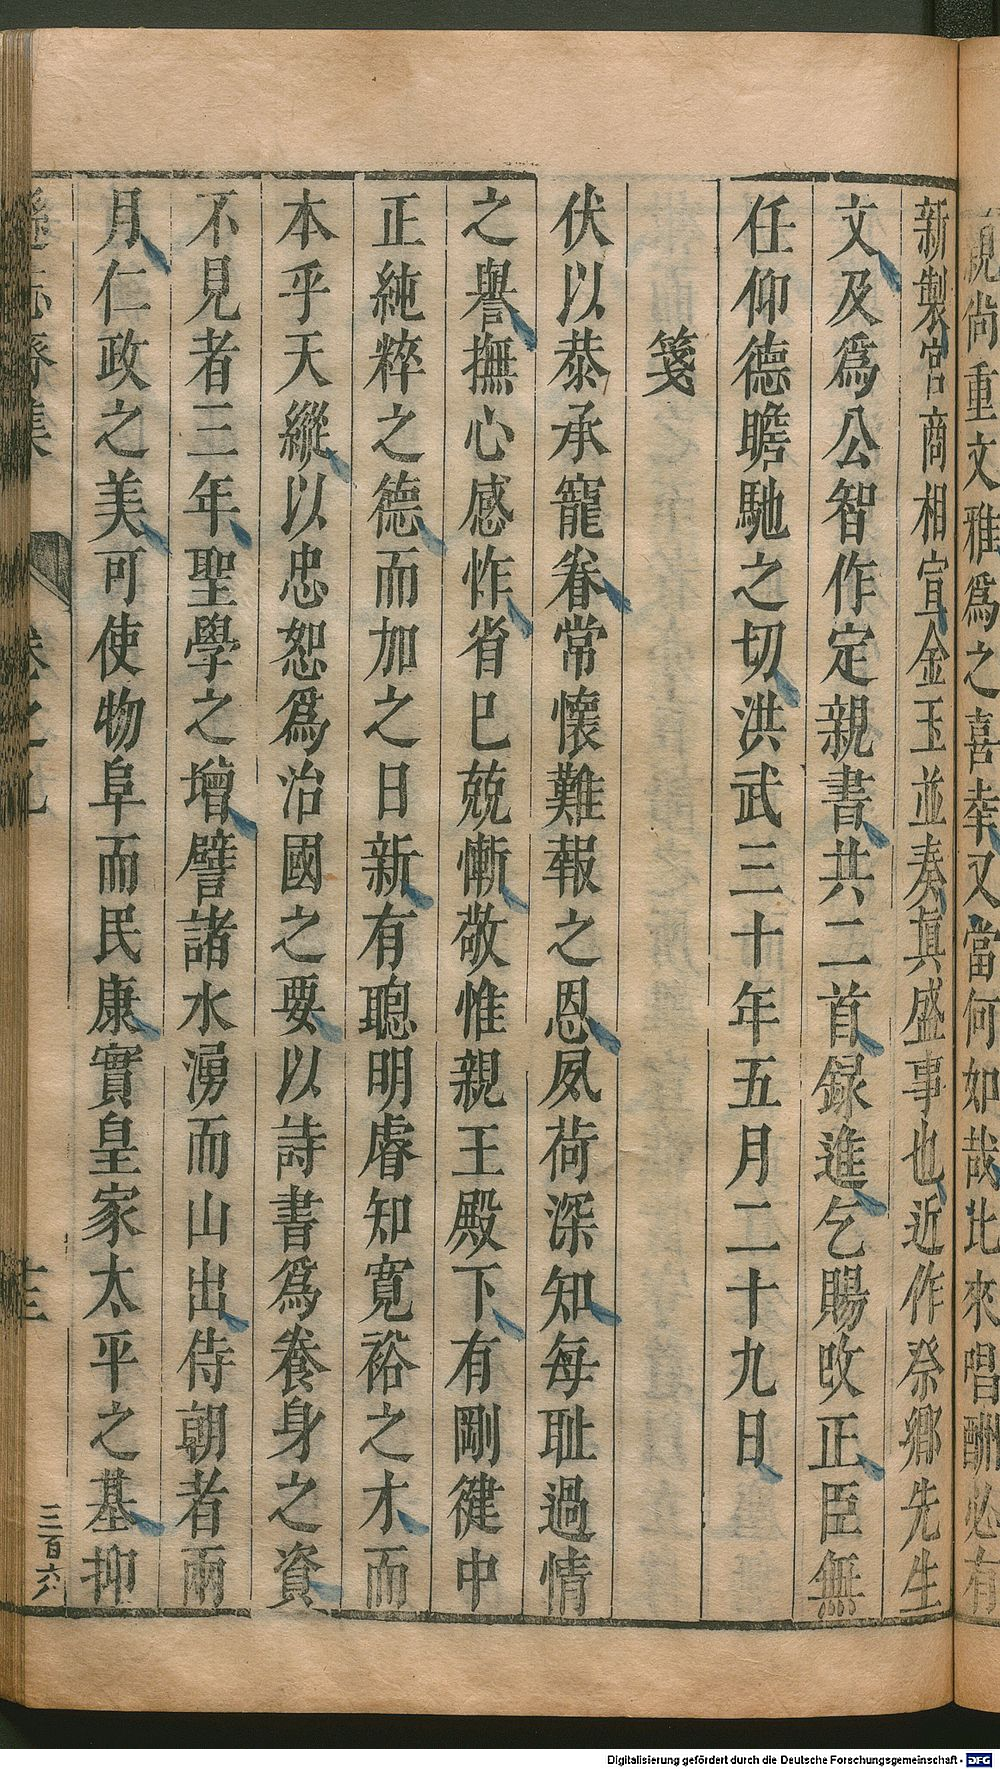 親尚重文雅爲之喜幸又當何如哉比來唱酬必有
新製宮商相宣金玉並奏真盛事也近作祭鄉先生
文及爲公智作定親書共二首録進乞賜改正臣無
任仰德瞻馳之切洪武三十年五月二十九日
箋
伏以恭承寵眷常懷難報之恩夙荷深知每耻過情
之譽撫心感怍省已兢慚敬惟親王殿下有剛健中
正純粹之德而加之日新有聰明睿知寛裕之才而
本乎天縱以忠恕爲治國之要以詩書爲養身之資
不見者三年聖學之增譬諸水湧而山出侍朝者兩
月仁政之美可使物阜而民康實皇家太平之基抑
遜志齋集
卷之九
十三
三百六八
Digitalisierung gefördert durch die Deutsche Forschungsgemeinschaft - DFG